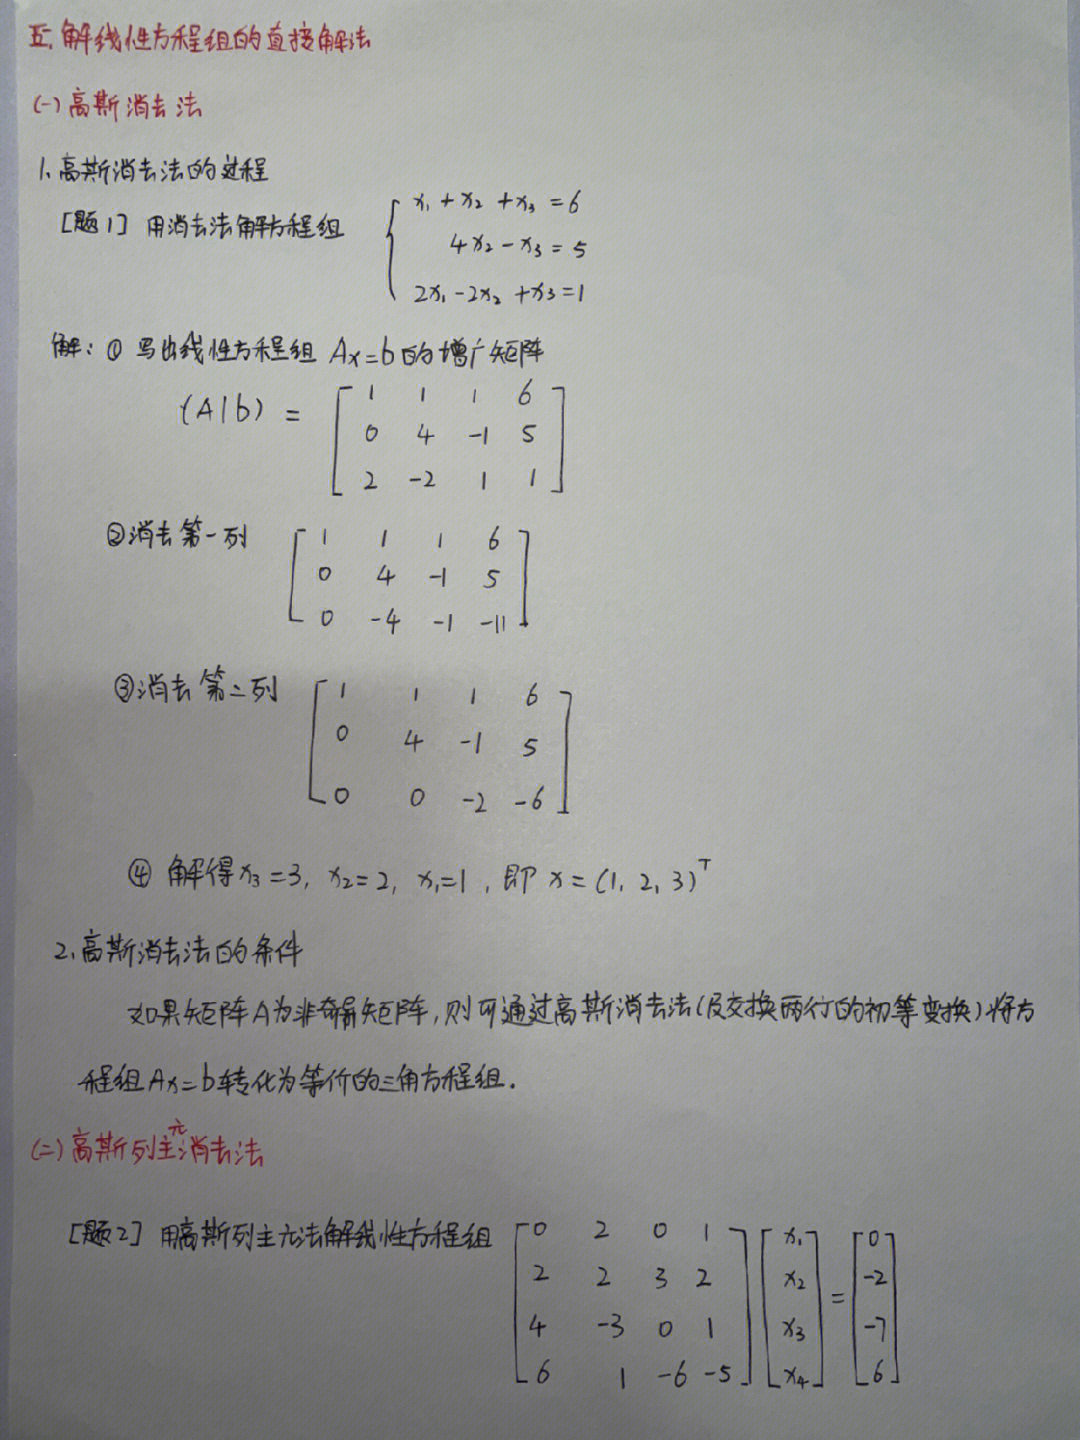 五、解线性方程组的直接解法
(一)高斯消去法
1、高斯消去法的过程
[题1] 用消去法解方程组
x₁+x₂+x₃=6
4x₂-x₃=5
2x₁-2x₂+x₃=1
解:① 写出线性方程组 Ax=b的增广矩阵
(A|b) =
1 1 1 6
0 4 -1 5
2 -2 1 1
②消去第一列
1 1 1 6
0 4 -1 5
0 -4 -1 -11
③消去第二列
1 1 1 6
0 4 -1 5
0 0 -2 -6
④ 解得x₃=3, x₂=2, x₁=1, 即 x=(1, 2, 3)ᵀ
2、高斯消去法的条件
如果矩阵A为非奇异矩阵,则可通过高斯消去法(及交换两行的初等变换)将方
程组Ax=b转化为等价的三角方程组.
(二)高斯列主元消去法
[题2] 用高斯列主元法解线性方程组
0 2 0 1 x₁ 0
2 2 3 2 x₂ = -2
4 -3 0 1 x₃ -7
6 1 -6 -5 x₄ 6